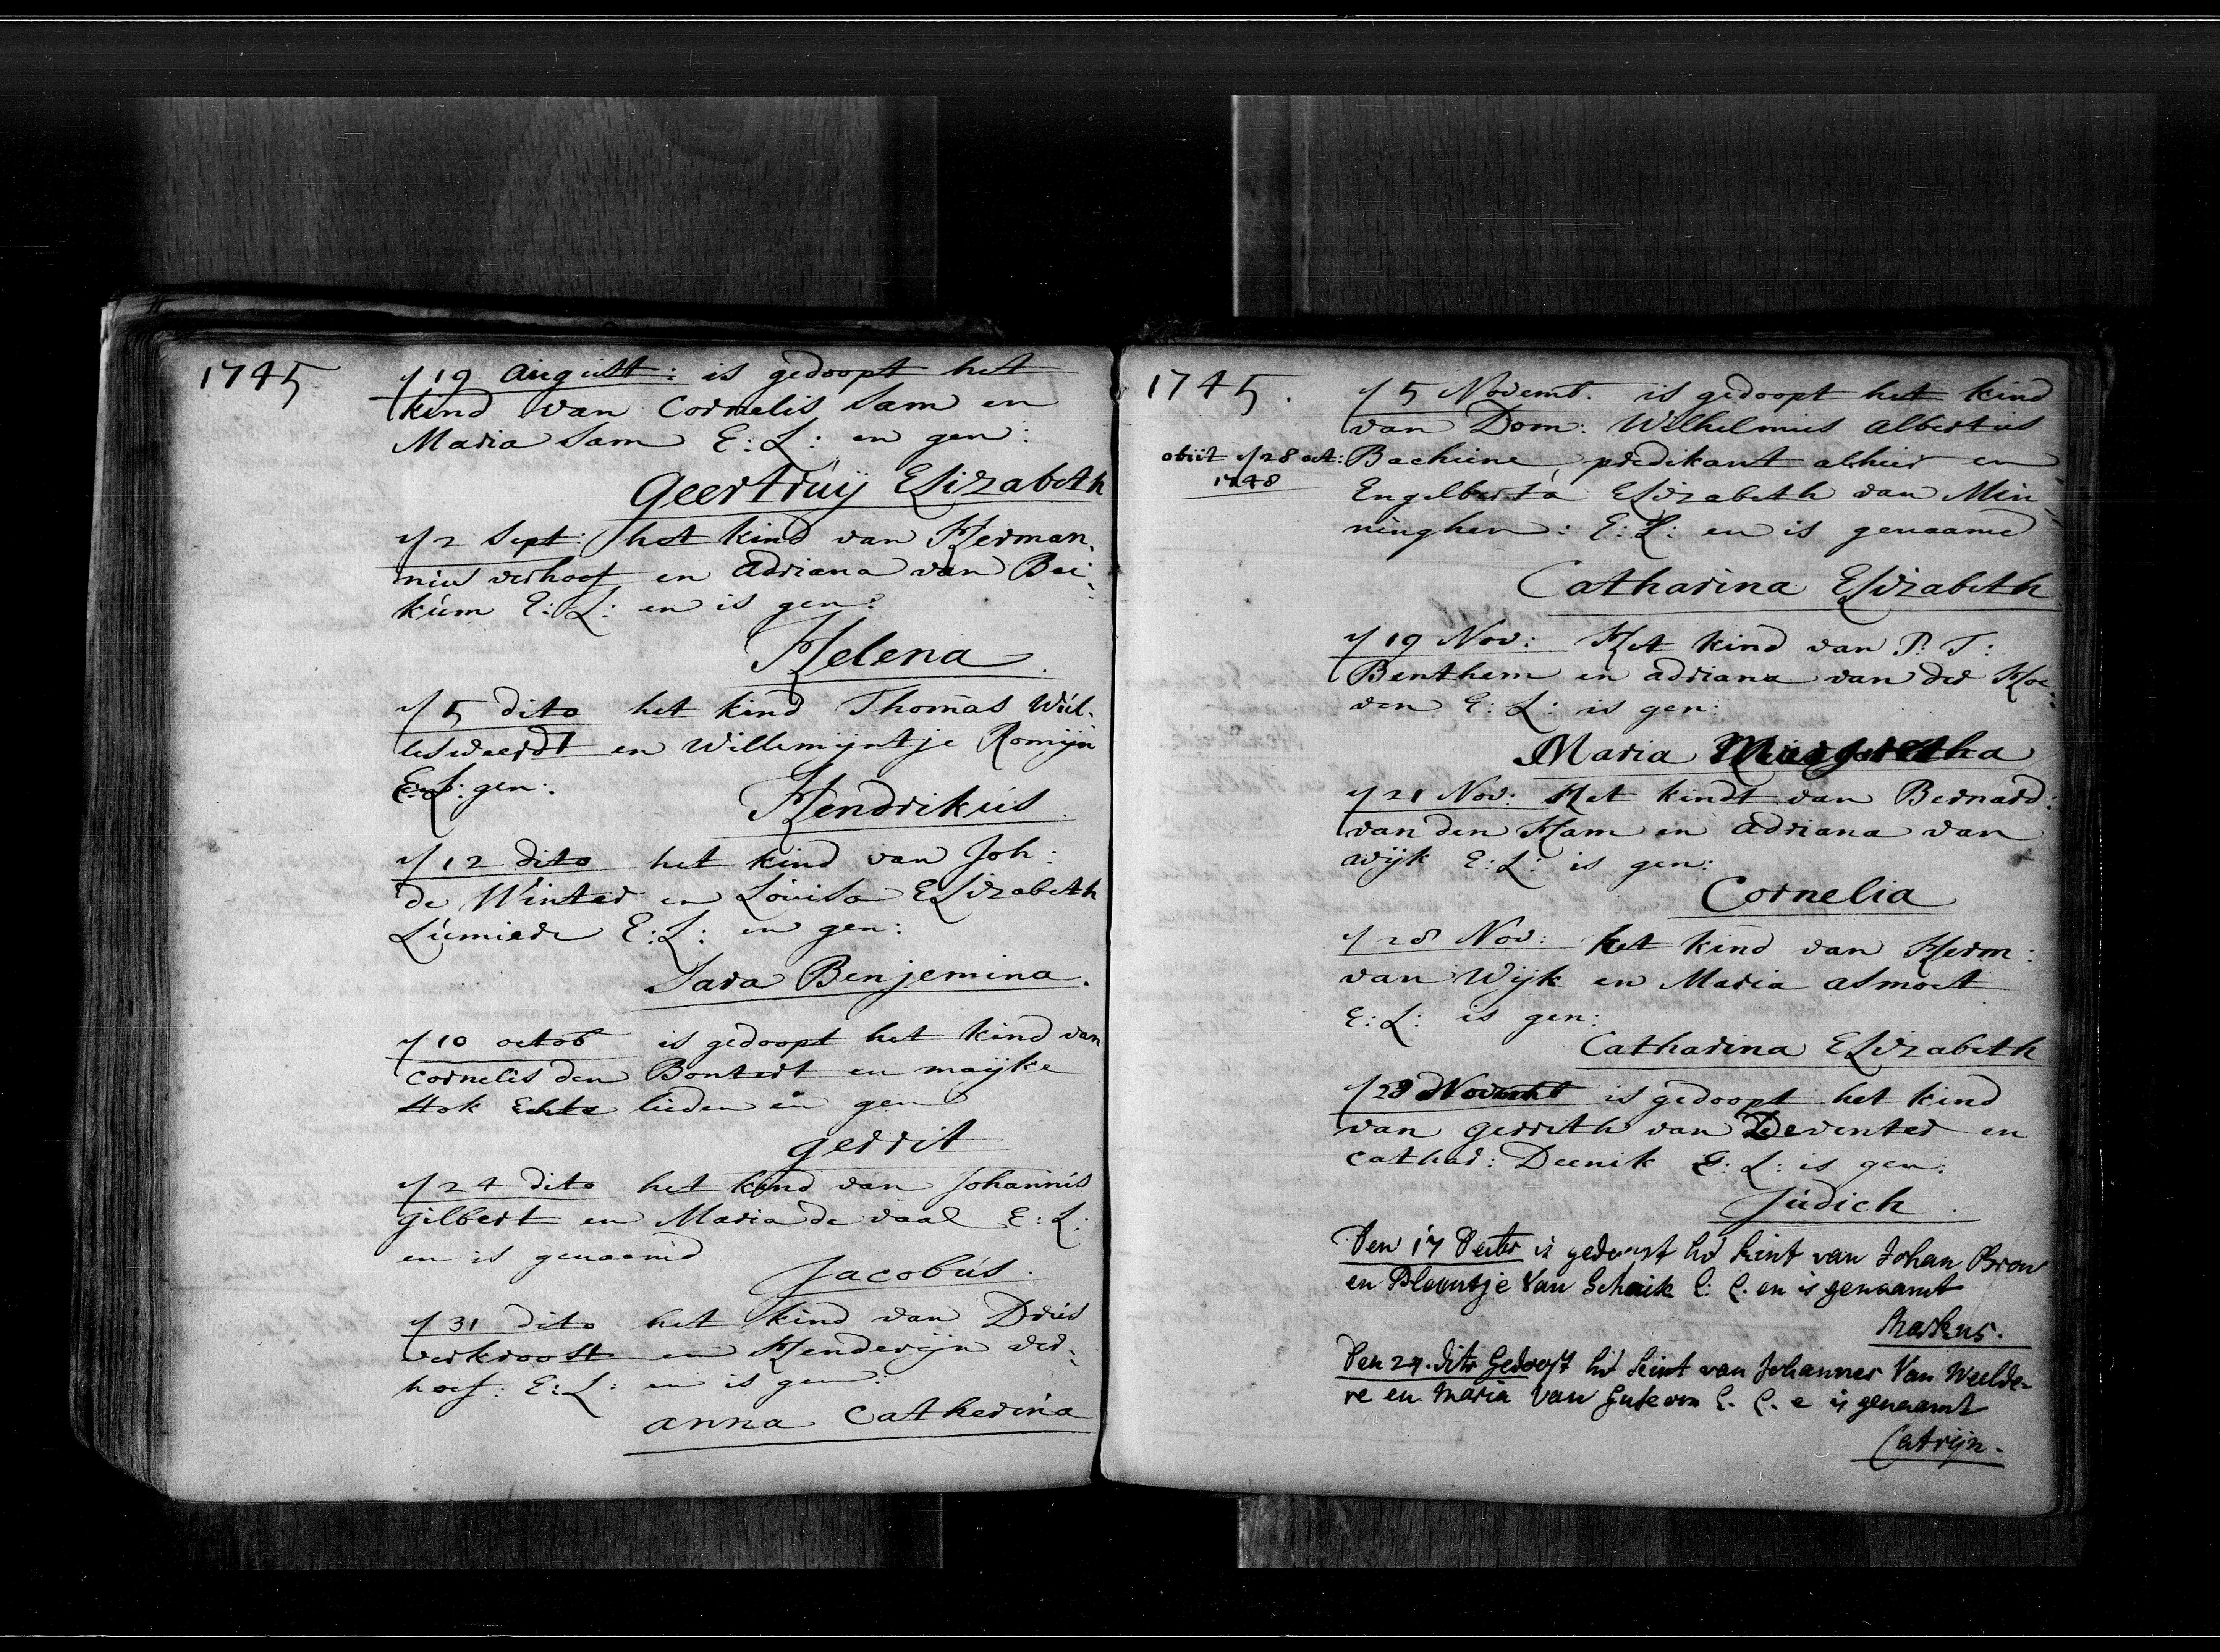 1745
d/ 19 August: is gedoopt het
kind van Cornelis Sam en
Maria Sam E: L: en gen:
Geertruij Elizabeth
d/ 2 Sept: het kind van Herman-
nus verhoef en Adriana van Beu-
kum E: L: en is gen:
Helena
d/ 5 dito het kind Thomas Wul-
lesweerdt en Willemijntje Romijn
E: L: gen:
Hendrikus
d/ 12 dito het kind van Joh:
de Winter en Louisa Elizabeth
E: L: en gen:
Sara Benjemina.
d/ 10 octob is gedoopt het kind van
Cornelis den Bontert en maijke
Hok Echte lieden en gen
gerrit
d/ 24 dito het kind van Johannis
gilbert en Maria de vaal E: L:
en is genaamd
Jacobus.
d/ 31 dito het kind van Dries
verkroost en Henderijn ver-
hoef: E: L: en is gen:
anna Catherina
1745.
d/ 5 Novemb. is gedoopt het kind
van Dom: Wilhelmus Albertus
obiit d/ 28 oct:
1748
Bachiene, predikant alhier en
Engelberta Elizabeth van Min-
ninghen: E: L: en is genaamd
Catharina Elizabeth
d/ 19 Nov: Het kind van P. T:
Benthem en adriana van der Hoe-
ven E: L: is gen:
Maria Margretha
d/ 21 Nov: Het kindt van Bernard:
van den Ham en Adriana van
wijk E: L: is gen:
Cornelia
d/ 28 Nov: het kind van Herm:
van Wijk en Maria asmoet
E: L: is gen:
Catharina Elizabeth
d/ 28 Novemb is gedoopt het kind
van gerrith van Deventer en
cathar: Deenik E: L: is gen:
Judich.
Den 17 is gedoopt het kint van Johan Bron
en Pleuntje Van Schaik E: L. en is genaamt
Markus.
Den 27. dito Gedoopt het kint van Johannes Van Weelde-
re en Maria Van E. L. e is genaamt
Catrijn.